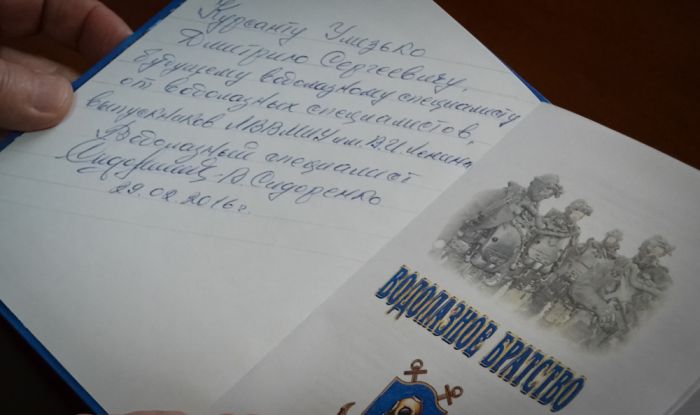 Курсанту Умзько
Дмитрию Сергеевичу,
будущему водолазному специалисту
от водолазных специалистов,
выпускников ЛВВМИУ им. В.И. Ленина
Водолазный специалист
В. Сидоренко
29.02.2016 г.
ВОДОЛАЗНОЕ БРАТСТВО